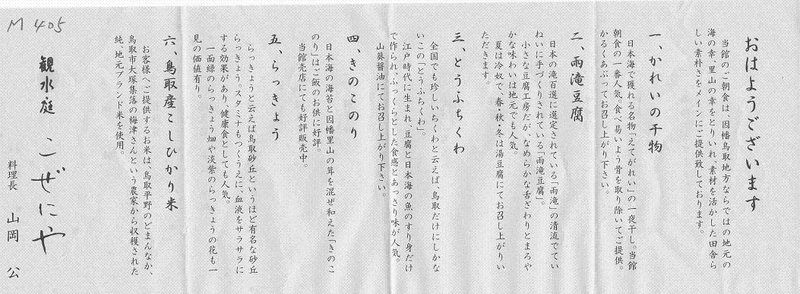 M 405
おはようございます
当館のご朝食は、因幡鳥取地方ならではの地元の
海の幸、里山の幸をとりいれ、素材を活かした田舎ら
しい素朴さをメインにご提供致しております。
一、かれいの干物
日本海で獲れる名物「えてがれい」の一夜干し。当館
朝食の一番人気。食べ易いよう骨を取り除いてご提供。
かるくあぶってお召し上がり下さい。
二、雨滝豆腐
日本の滝百選に選定されている「雨滝」の清流でてい
ねいに手づくりされている「雨滝豆腐」。
小さな豆腐工房だが、なめらかな舌ざわりとまろや
かな味わいは地元でも人気。
夏は冷奴で、春・秋・冬は湯豆腐にてお召し上がりい
ただきます。
三、とうふちくわ
全国でも珍しいちくわと云えば、鳥取だけにしかな
いこの「とうふちくわ」。
江戸時代に生まれ、豆腐と日本海の魚のすり身だけ
で作られ、ふっくらとした食感とあっさり味が人気。
山葵醤油にてお召し上がり下さい。
四、きのこのり
日本海の海苔と因幡里山の茸を混ぜ和えた「きのこ
のり」はご飯のお供に好評。
当館売店にても好評販売中。
五、らっきょう
らっきょうと云えば鳥取砂丘というほど有名な砂丘
らっきょう。スタミナをつくうえに、血液をサラサラに
する効果があり、健康食としても人気。
一面緑のらっきょう畑や淡紫のらっきょうの花も一
見の価値有り。
六、鳥取産こしひかり米
お客様へご提供するお米は、鳥取平野のどまんなか、
鳥取市大塚集落の梅津さんという農家から収穫された
純、地元ブランド米を使用。
観水庭 こぜにや
料理長 山岡 公